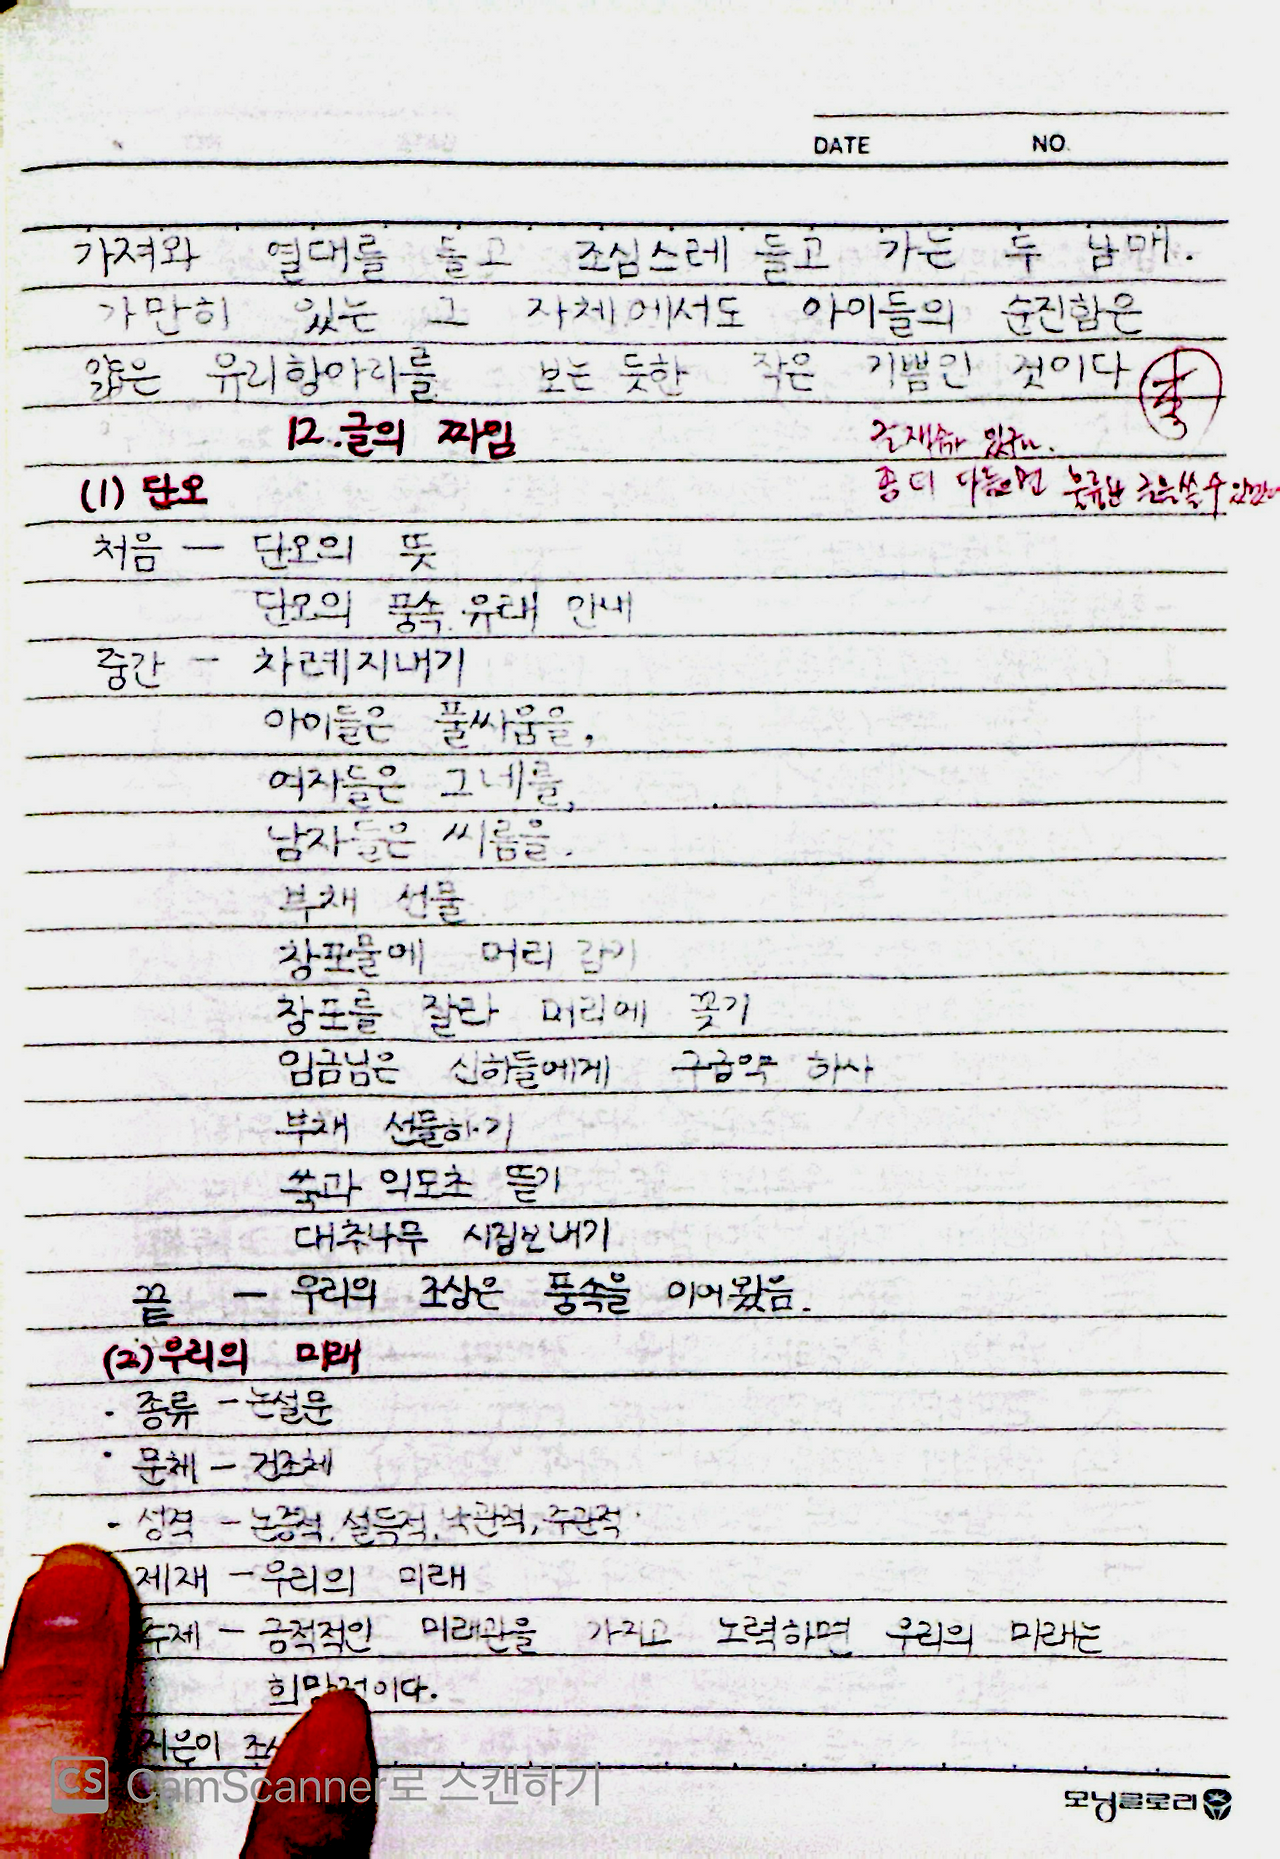 DATE NO.
가져와 열대를 들고 조심스레 들고 가는 두 남매.
가만히 있는 그 자체에서도 아이들의 순진함은
얇은 유리항아리를 보는 듯한 작은 기쁨인 것이다
12. 글의 짜임
글재주가 있구나.
좀 더 다듬으면 훌륭한 글을 쓸 수
(1) 단오
처음 — 단오의 뜻
단오의 풍속, 유래 안내
중간 — 차례지내기
아이들은 풀싸움을,
여자들은 그네를,
남자들은 씨름을.
부채 선물
창포물에 머리 감기
창포를 잘라 머리에 꽂기
임금님은 신하들에게 구급약 하사
부채 선물하기
쑥과 익모초 뜯기
대추나무 시집보내기
끝 — 우리의 조상은 풍속을 이어왔음.
(2) 우리의 미래
· 종류 — 논설문
· 문체 — 건조체
· 성격 — 논증적, 설득적, 낙관적, 주관적
제재 — 우리의 미래
주제 — 긍적적인 미래관을 가지고 노력하면 우리의 미래는
희망적이다.
지은이
CS CamScanner로 스캔하기
모닝글로리